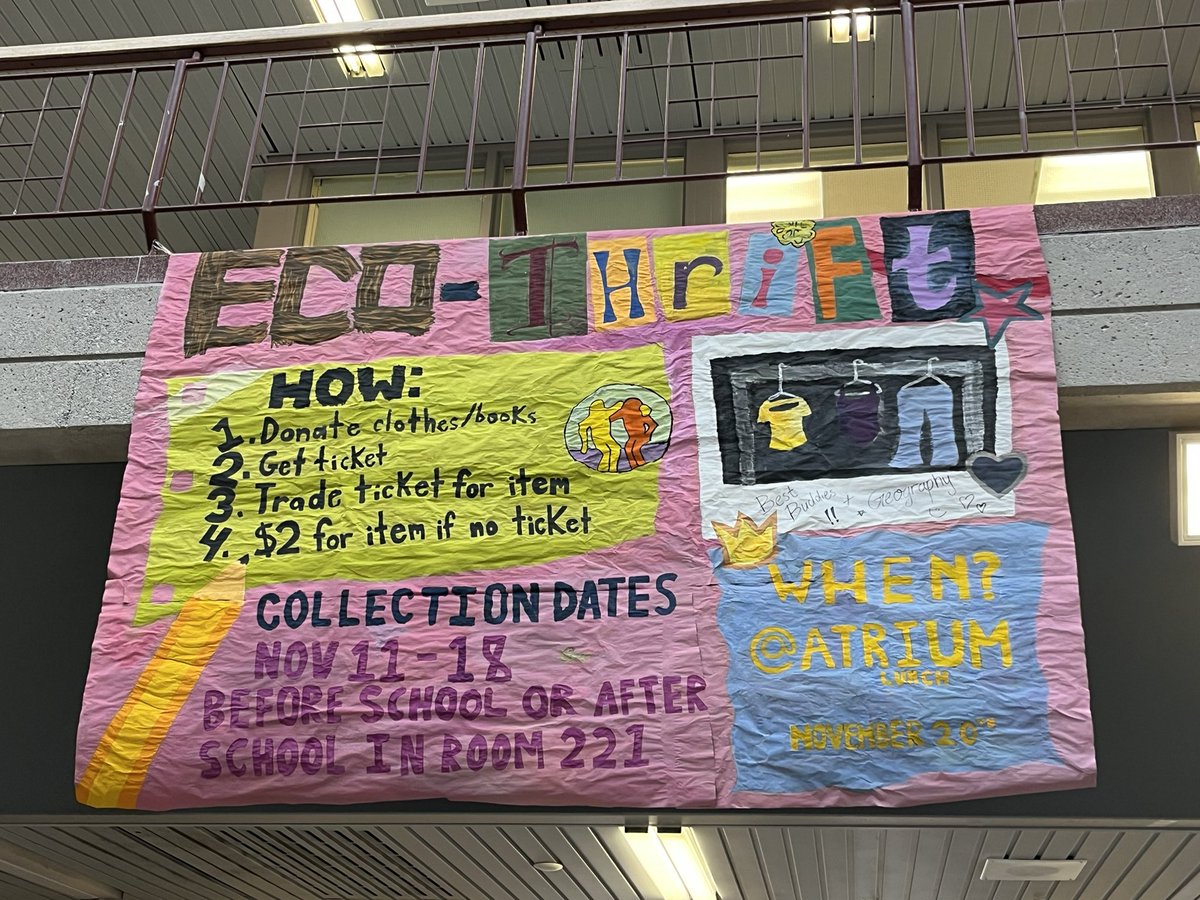 ECO-THrift
HOW:
1. Donate clothes/books
2. Get ticket
3. Trade ticket for item
4. $2 for item if no ticket
COLLECTION DATES
NOV 11-18
BEFORE SCHOOL OR AFTER
SCHOOL IN ROOM 221
Best
Buddies + Geography
!!
WHEN?
@ATRIUM
LUNCH
NOVEMBER 20TH